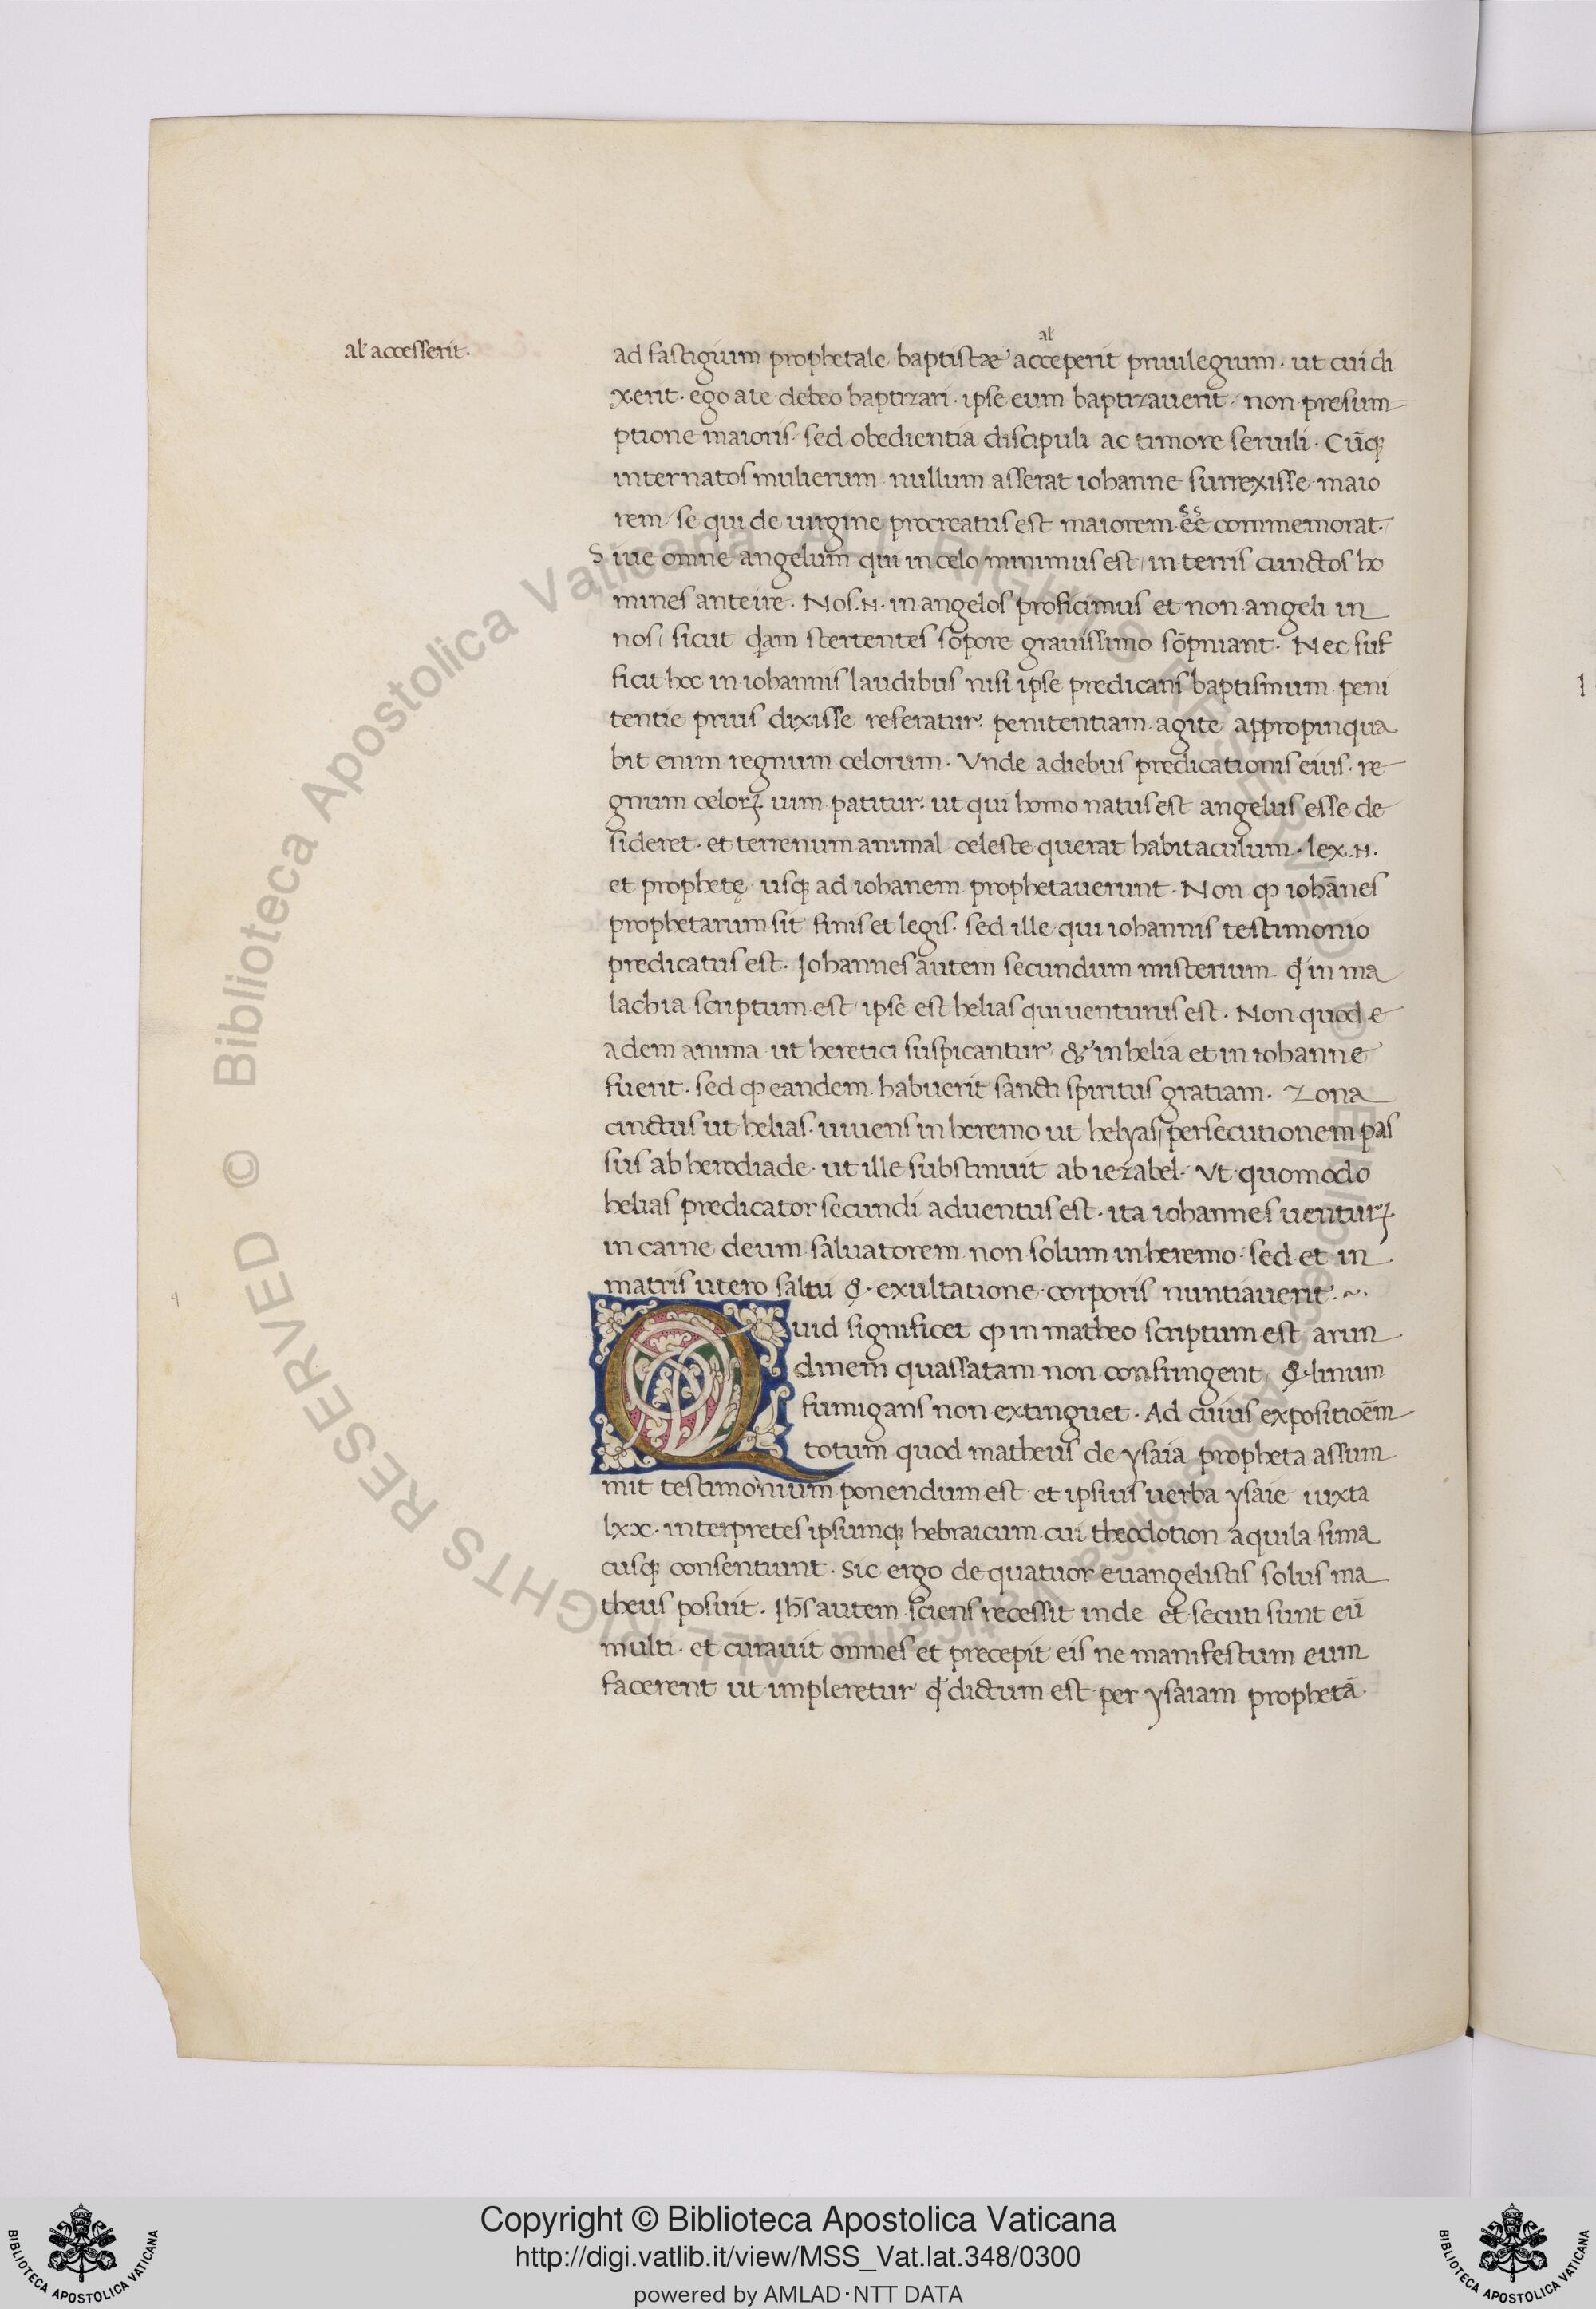 al̄ accesserit.
al̄
ad fastigium prophetale baptistæ acceperit priuilegium. ut cui di
xerit. ego a te debeo baptizari. ipse eum baptizauerit. non presum
ptione maioris. sed obedientia discipuli ac timore seruili. Cūq;
inter natos mulierum nullum asserat iohanne surrexisse maio
rem. se qui de uirgine procreatus est maiorem ēē commemorat.
Siue omne angelum qui in celo minimus est, in terris cunctos ho
mines anteire. Nos .N. in angelos proficimus et non angeli in
nos, sicut q̄dam stertentes sopore grauissimo sōpniant. Nec suf
ficit hoc in iohannis laudibus nisi ipse predicans baptismum peni
tentie prius dixisse referatur. penitentiam agite appropinqua
bit enim regnum celorum. Vnde a diebus predicationis eius. re
gnum celorꝝ uim patitur. ut qui homo natus est angelus esse de
sideret. et terrenum animal celeste querat habitaculum. lex .N.
et prophetę usq; ad iohanem prophetauerunt. Non ꝙ iohānes
prophetarum sit finis et legis. sed ille qui iohannis testimonio
predicatus est. Iohannes autem secundum misterium qd̄ in ma
lachia scriptum est, ipse est helias qui uenturus est. Non quod e
adem anima ut heretici suspicantur, & in helia et in iohanne
fuerit. sed ꝙ eandem habuerit sancti spiritus gratiam. Zona
cinctus ut helias. uiuens in heremo ut helyas, persecutionem pas
sus ab herodiade. ut ille substinuit ab iezabel. Vt quomodo
helias predicator secundi aduentus est. ita iohannes uenturꝝ
in carne deum saluatorem non solum in heremo. sed et in
matris utero saltu & exultatione corporis nuntiauerit. ~.
Quid significet ꝙ in matheo scriptum est arun
dinem quassatam non confringent, & linum
fumigans non extinguet. Ad cuius expositioēm
totum quod matheus de ysaia propheta assum
mit testimonium ponendum est et ipsius uerba ysaie iuxta
lxx. interpretes ipsumq; hebraicum cui theodotion aquila sima
cusq; consentiunt. Sic ergo de quatuor euangelistis solus ma
theus posuit. Ihs̄ autem sciens recessit inde et secuti sunt eū
multi. et curauit omnes et precepit eis ne manifestum eum
facerent ut impleretur qd̄ dictum est per ysaiam prophetā.
Biblioteca Apostolica Vaticana ALL RIGHTS RESERVED ©
Copyright © Biblioteca Apostolica Vaticana
http://digi.vatlib.it/view/MSS_Vat.lat.348/0300
powered by AMLAD·NTT DATA
BIBLIOTECA APOSTOLICA VATICANA
BIBLIOTECA APOSTOLICA VATICANA